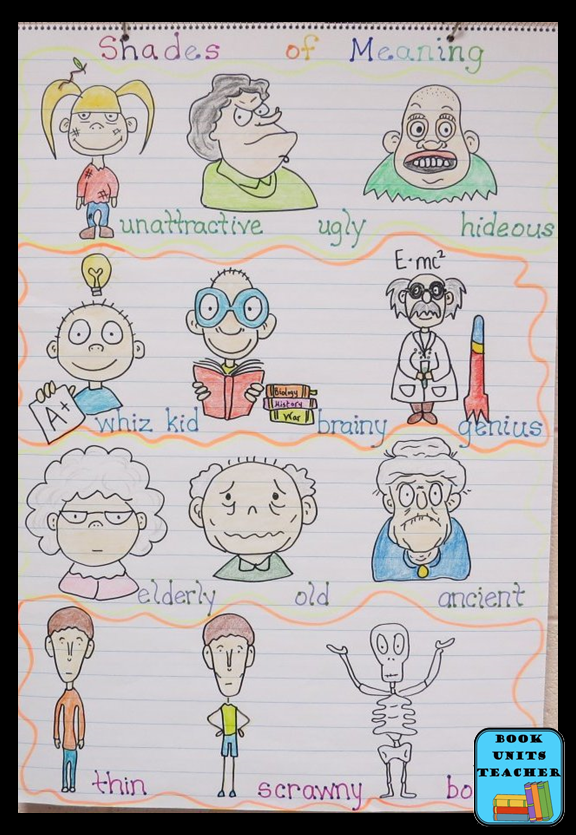 Shades of Meaning
unattractive ugly hideous
E=mc²
A+
Biology
History
War
whiz kid brainy genius
elderly old ancient
thin scrawny
BOOK
UNITS
TEACHER